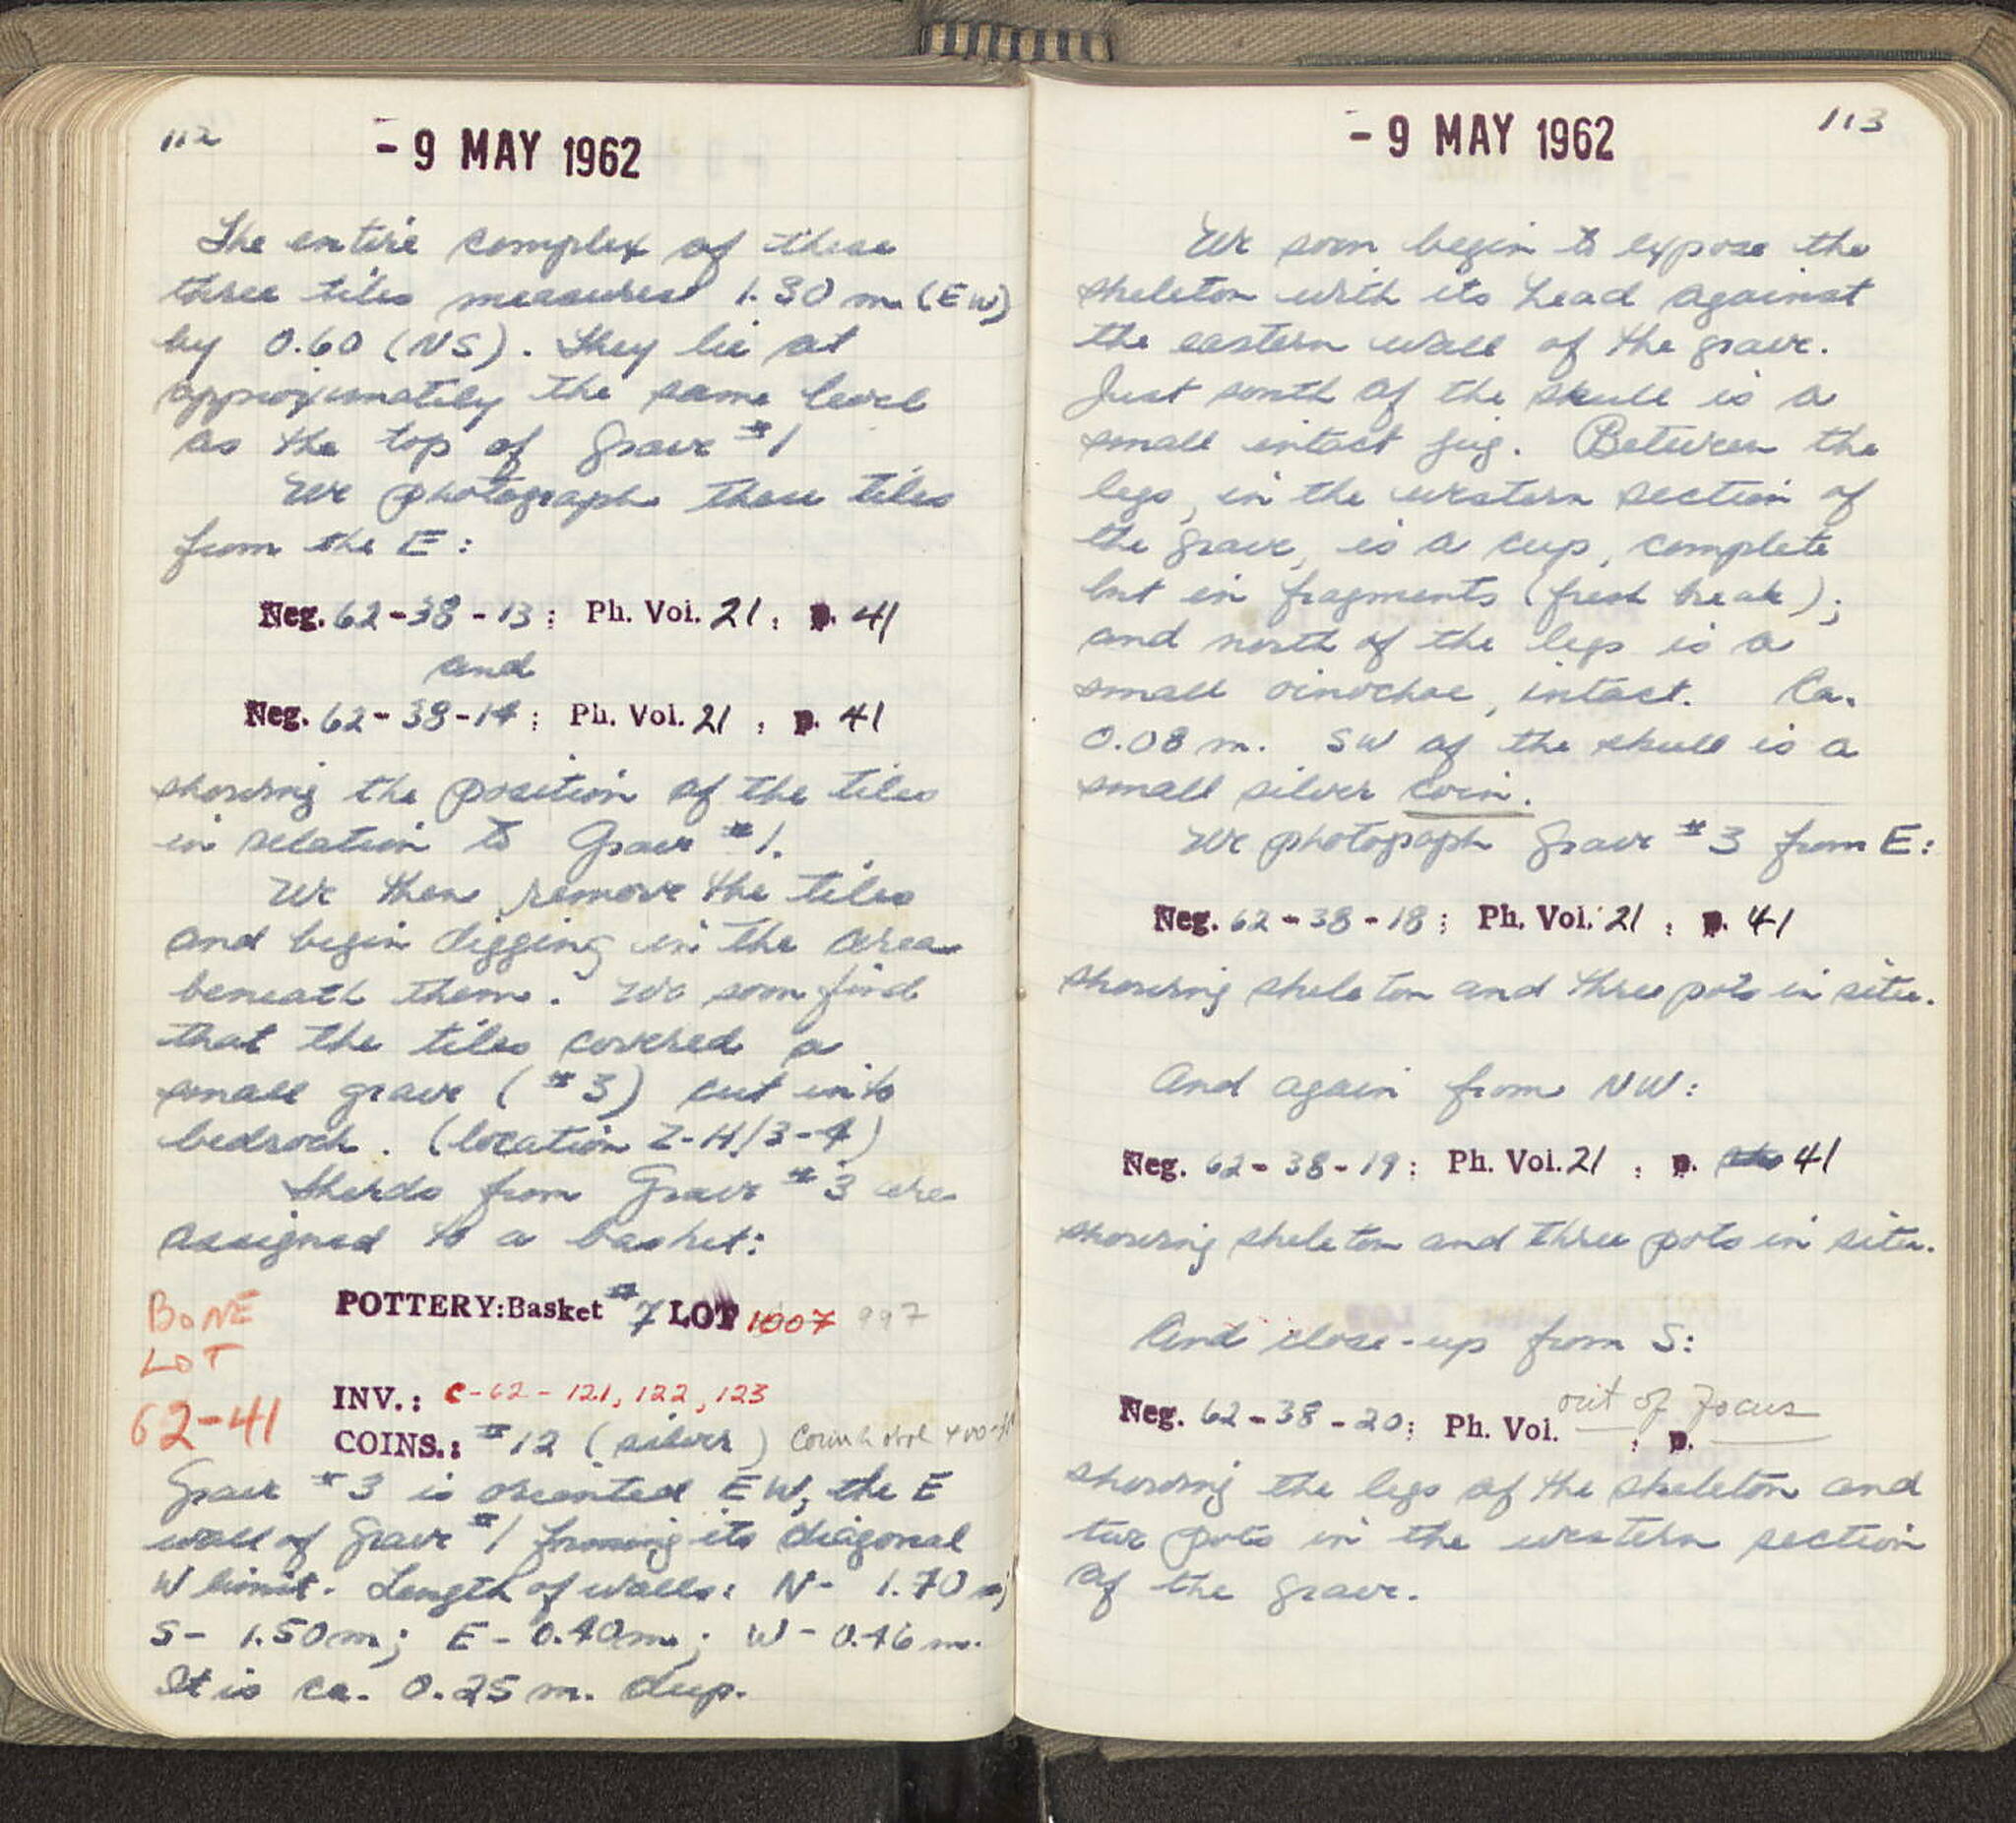 112
- 9 MAY 1962
The entire complex of these
three tiles measures 1.30 m (EW)
by 0.60 (NS). They lie at
approximately the same level
as the top of Grave #1
We photograph these tiles
from the E:
Neg. 62-38-13; Ph. Vol. 21, p. 41
and
Neg. 62-38-14; Ph. Vol. 21, p. 41
showing the position of the tiles
in relation to Grave #1.
We then remove the tiles
and begin digging in the area
beneath them. We soon find
that the tiles covered a
small grave (#3) cut into
bedrock. (location Z-H/3-4)
Sherds from Grave #3 are
assigned to a basket:
BONE
LOT
62-41
POTTERY: Basket #7 LOT 1007 997
INV.: C-62-121, 122, 123
COINS.: #12 (silver)
Grave #3 is oriented EW, the E
wall of Grave #1 forming its diagonal
W limit. Length of walls: N- 1.70 m;
S- 1.50m; E- 0.40m; W- 0.46 m.
It is ca. 0.25 m. deep.
113
- 9 MAY 1962
We soon begin to expose the
skeleton with its head against
the eastern wall of the grave.
Just south of the skull is a
small intact jug. Between the
legs, in the western section of
the grave, is a cup, complete
but in fragments (fresh break);
and north of the legs is a
small oinochoe, intact. Ca.
0.08 m. SW of the skull is a
small silver coin.
We photograph Grave #3 from E:
Neg. 62-38-18; Ph. Vol. 21, p. 41
showing skeleton and three pots in situ.
And again from NW:
Neg. 62-38-19; Ph. Vol. 21, p. 41
showing skeleton and three pots in situ.
And close-up from S:
out of focus
Neg. 62-38-20; Ph. Vol. , p.
showing the legs of the skeleton and
two pots in the western section
of the grave.